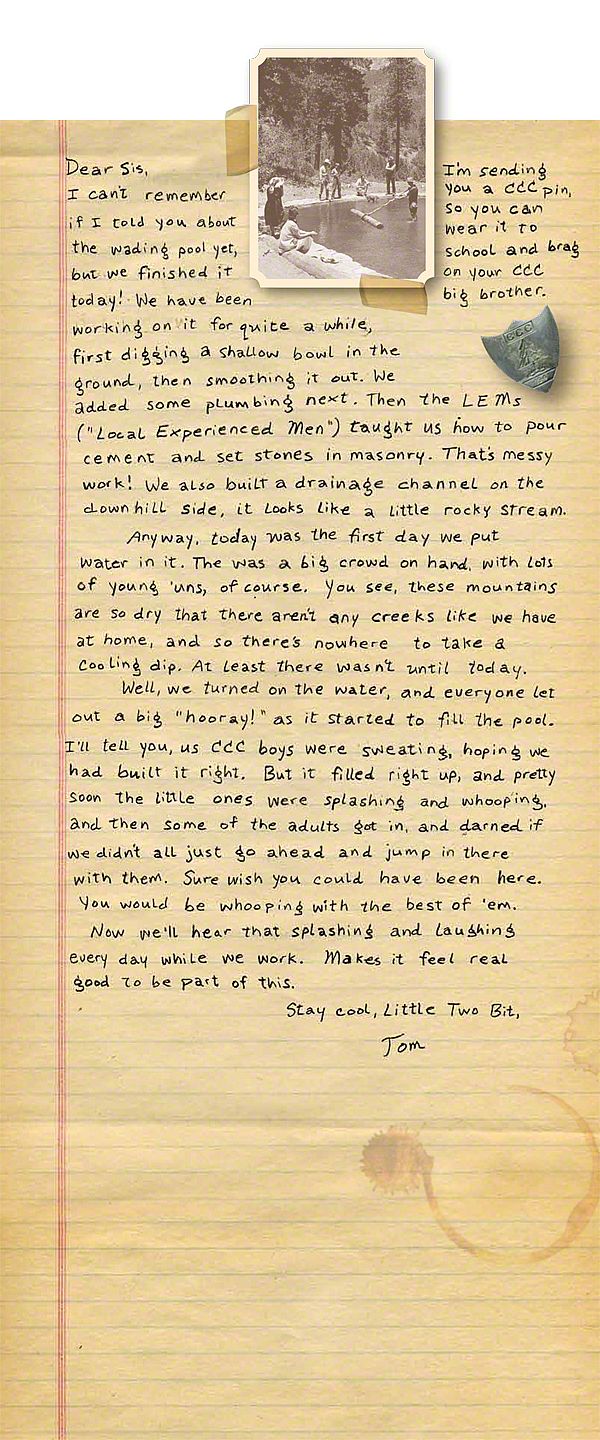 Dear Sis,
I can't remember
if I told you about
the wading pool yet,
but we finished it
today! We have been
working on it for quite a while,
first digging a shallow bowl in the
ground, then smoothing it out. We
added some plumbing next. Then the LEMs
("Local Experienced Men") taught us how to pour
cement and set stones in masonry. That's messy
work! We also built a drainage channel on the
downhill side, it looks like a little rocky stream.
Anyway, today was the first day we put
water in it. The was a big crowd on hand, with lots
of young 'uns, of course. You see, these mountains
are so dry that there aren't any creeks like we have
at home, and so there's nowhere to take a
cooling dip. At least there wasn't until today.
Well, we turned on the water, and everyone let
out a big "hooray!" as it started to fill the pool.
I'll tell you, us CCC boys were sweating, hoping we
had built it right. But it filled right up, and pretty
soon the little ones were splashing and whooping,
and then some of the adults got in, and darned if
we didn't all just go ahead and jump in there
with them. Sure wish you could have been here.
You would be whooping with the best of 'em.
Now we'll hear that splashing and laughing
every day while we work. Makes it feel real
good to be part of this.
Stay cool, Little Two Bit,
Tom
I'm sending
you a CCC pin,
so you can
wear it to
school and brag
on your CCC
big brother.
CCC